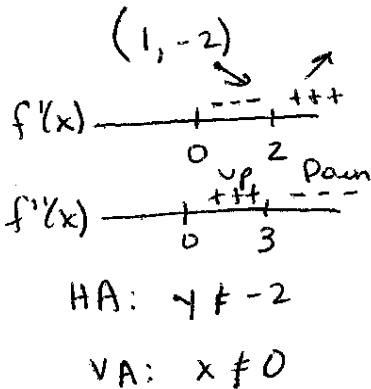 (1, -2)
--- +++
f'(x)
0 2
up Down
+++ ---
f''(x)
0 3
HA: y ≠ -2
VA: x ≠ 0